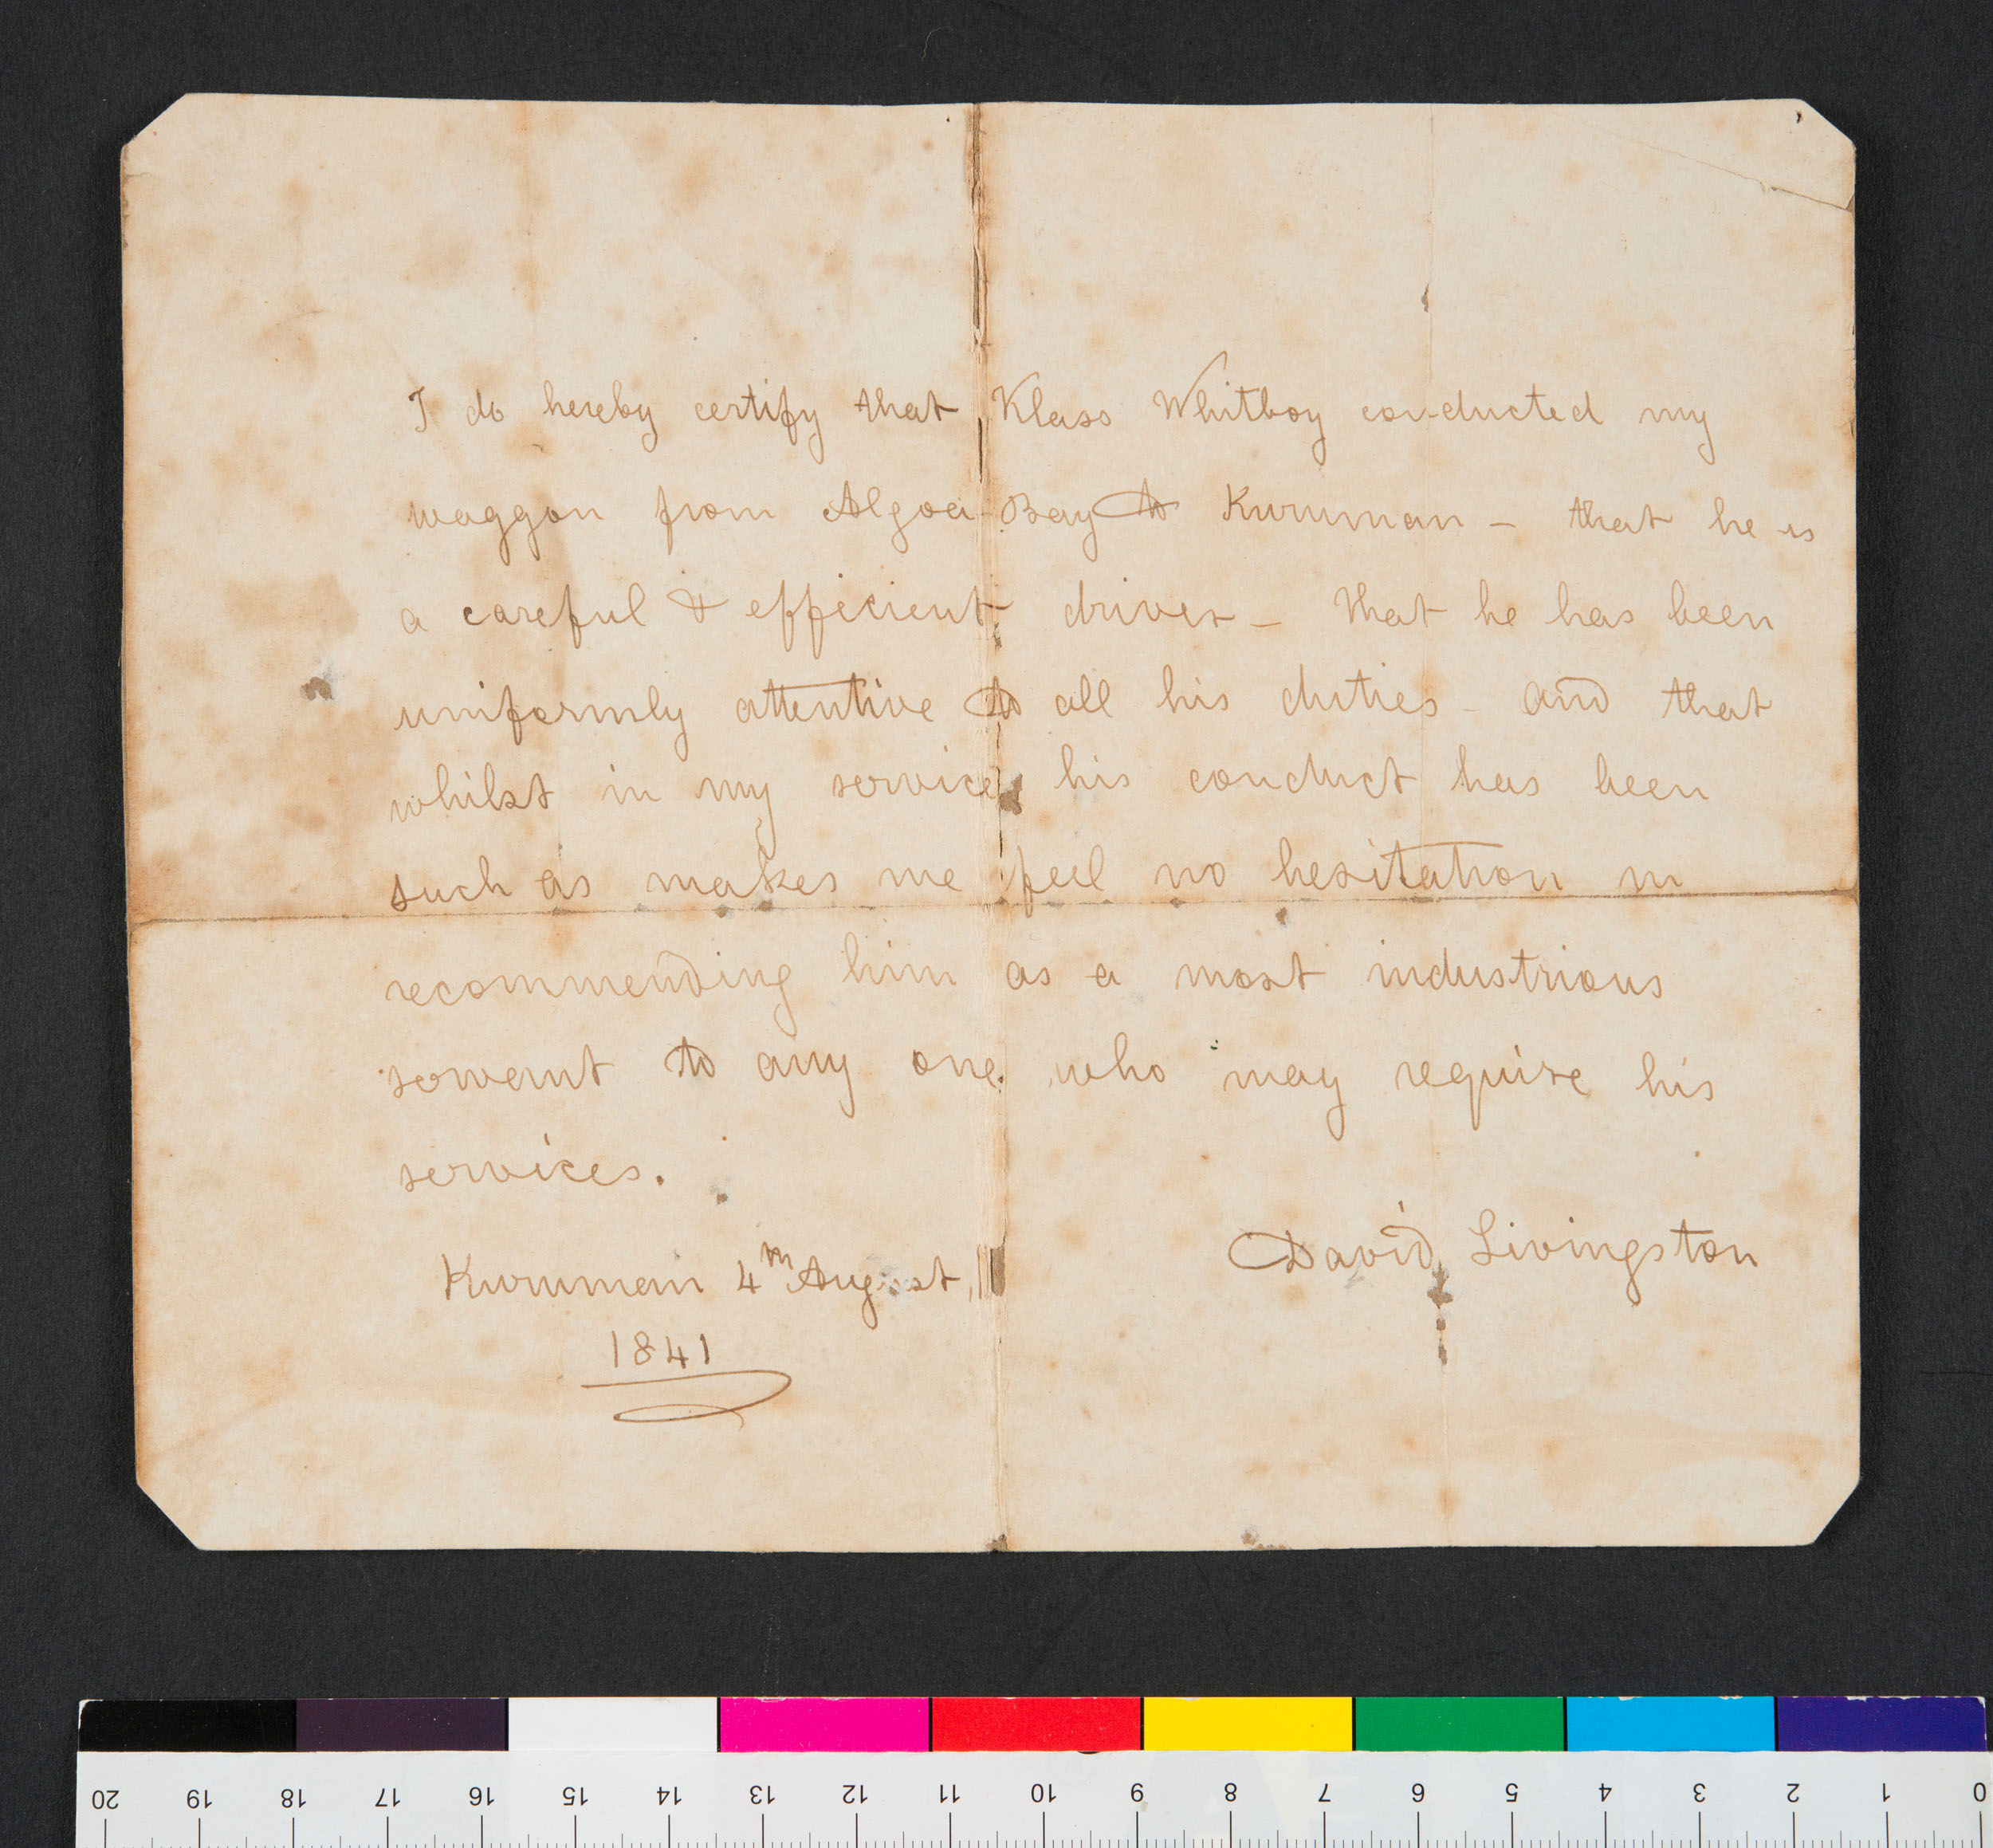 I do hereby certify that Klass Whitboy conducted my
waggon from Algoa Bay to Kuruman - that he is
a careful & efficient driver - that he has been
uniformly attentive to all his duties - and that
whilst in my service his conduct has been
such as makes me feel no hesitation in
recommending him as a most industrious
servant to any one who may require his
services.
David Livingston
Kuruman 4th August
1841
20 19 18 17 16 15 14 13 12 11 10 9 8 7 6 5 4 3 2 1 0